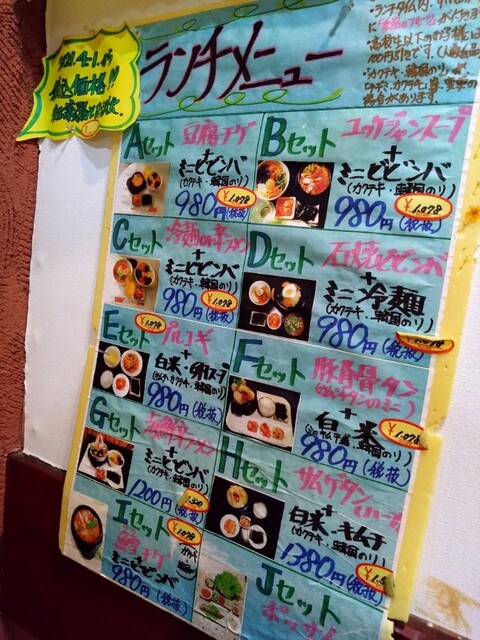 ランチメニュー
'21.4-1.から
税込価格!!
・ランチタイム内、
高校生以下のお子様は
100円引です。
場合があります。
Aセット 豆腐チゲ
+
ミニビビンバ
(カクテキ・韓国のり)
980円(税抜)
¥1.078
Bセット ユッケジャンスープ
+
ミニビビンバ
(カクテキ・韓国のり)
980円(税抜)
¥1.078
Cセット 冷麺or辛ラーメン
+
ミニビビンバ
(カクテキ・韓国のり)
980円(税抜)
¥1.078
Dセット 石焼ビビンバ
+
ミニ冷麺
(カクテキ・韓国のり)
980円(税抜)
¥1.078
Eセット プルコギ
+
白米+卵スープ
980円(税抜)
¥1.078
Fセット 豚背骨タン
(カムジャタンのミニ)
+
白米
980円(税抜)
¥1.078
Gセット
+
ミニビビンバ
(カクテキ・韓国のり)
1200円(税抜)
Hセット サムゲタン
(ハーフ)
+
白米+キムチ
(カクテキ・韓国のり)
1380円(税抜)
Iセット
チゲ
ミニビビンバ
980円(税抜)
¥1.078
Jセット
ポッサム